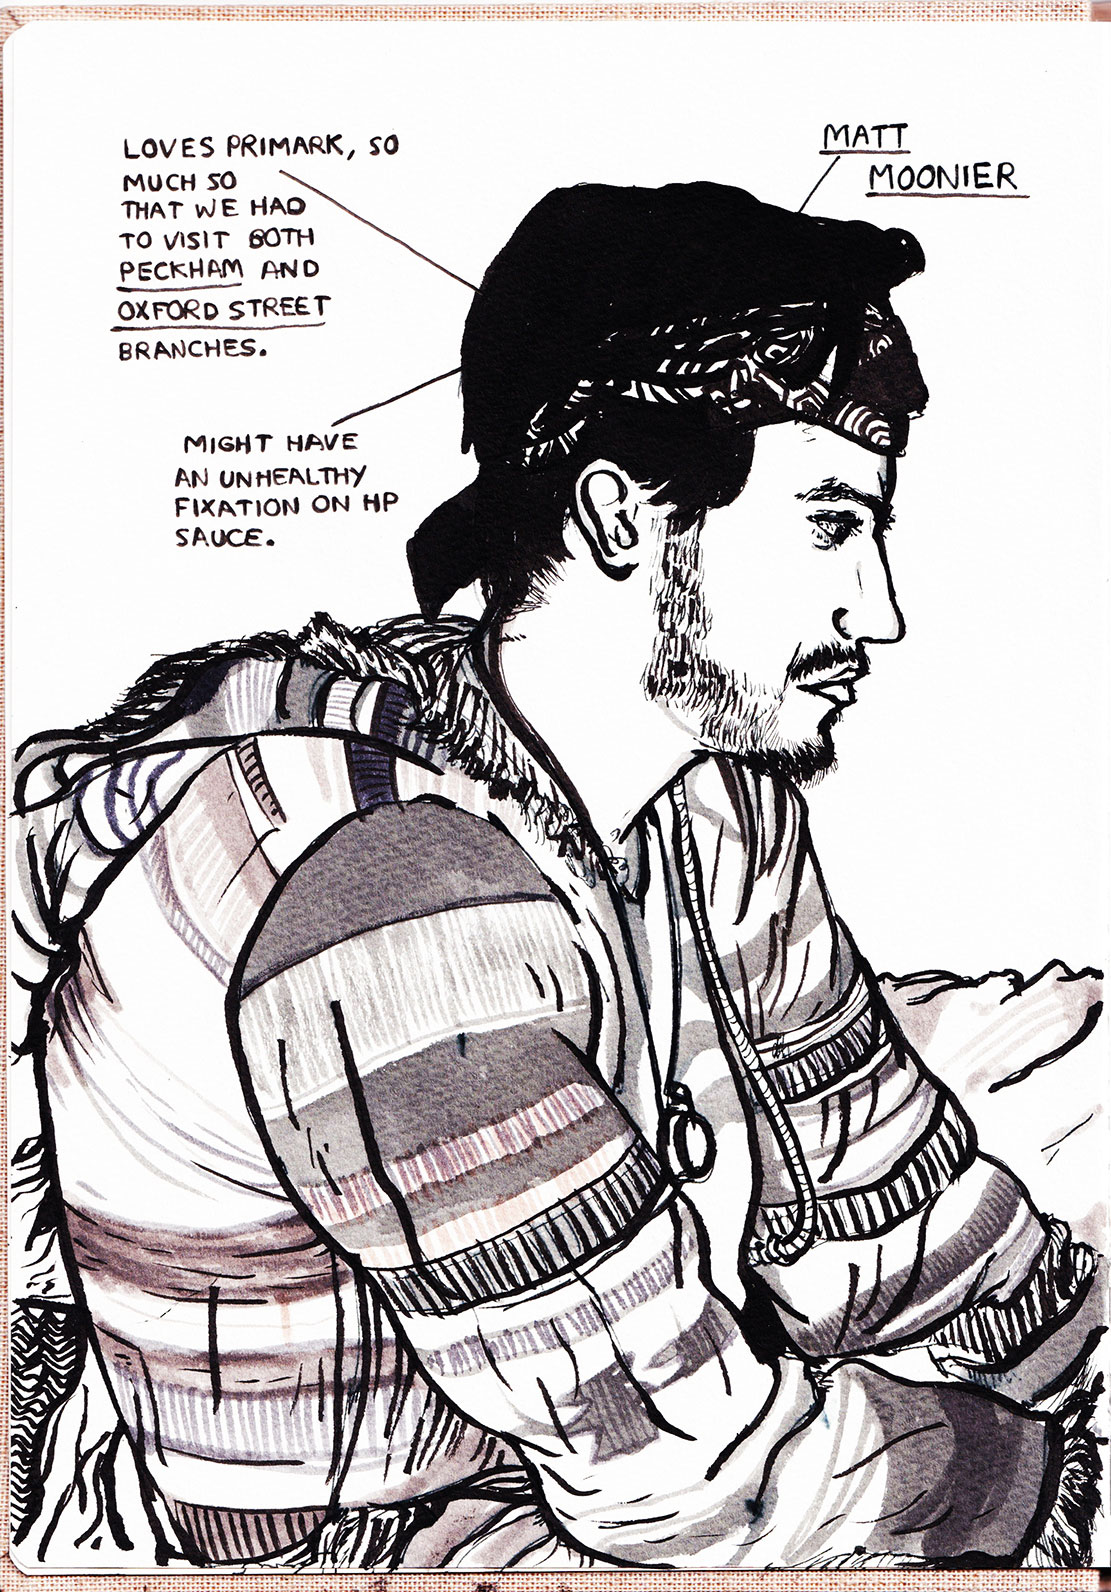 LOVES PRIMARK, SO
MUCH SO
THAT WE HAD
TO VISIT BOTH
PECKHAM AND
OXFORD STREET
BRANCHES.
MIGHT HAVE
AN UNHEALTHY
FIXATION ON HP
SAUCE.
MATT
MOONIER